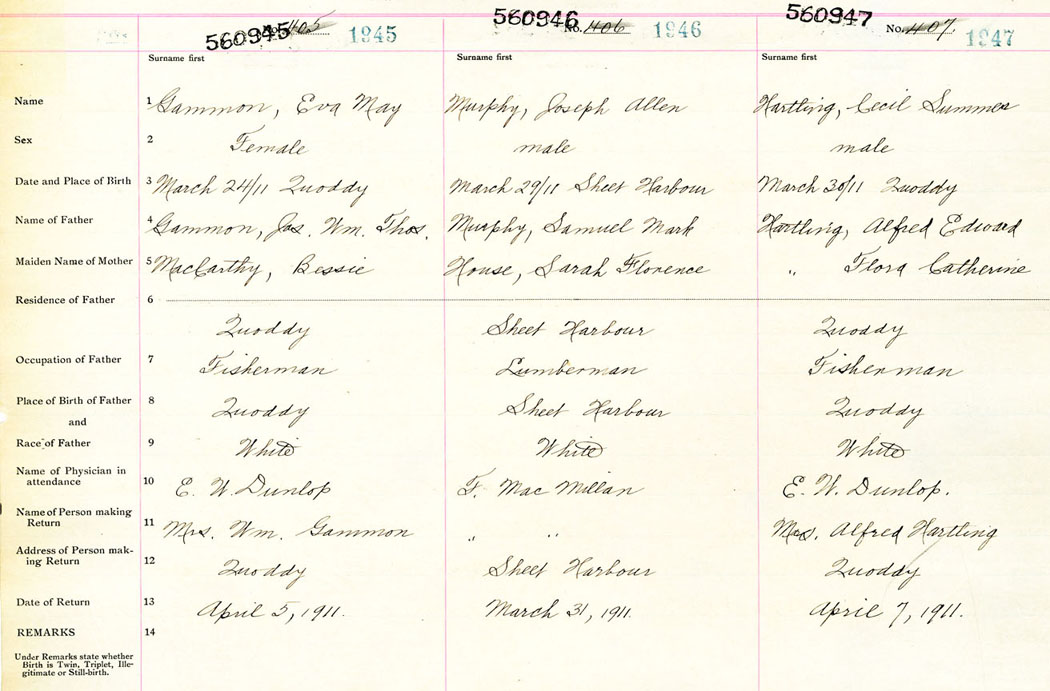 560945 No. 405 1945 560946 No. 406 1946 560947 No. 407 1947
Surname first Surname first Surname first
Name 1 Gammon, Eva May Murphy, Joseph Allen Hartling, Cecil Summer
Sex 2 Female male male
Date and Place of Birth 3 March 24/11 Quoddy March 29/11 Sheet Harbour March 30/11 Quoddy
Name of Father 4 Gammon, Jas. Wm. Thos. Murphy, Samuel Mark Hartling, Alfred Edward
Maiden Name of Mother 5 MacCarthy, Bessie House, Sarah Florence " Flora Catherine
Residence of Father 6
Quoddy Sheet Harbour Quoddy
Occupation of Father 7 Fisherman Lumberman Fisherman
Place of Birth of Father 8 Quoddy Sheet Harbour Quoddy
and
Race of Father 9 White White White
Name of Physician in
attendance 10 E. W. Dunlop F. MacMillan E. W. Dunlop.
Name of Person making
Return 11 Mrs. Wm. Gammon " " Mrs. Alfred Hartling
Address of Person mak-
ing Return 12 Quoddy Sheet Harbour Quoddy
Date of Return 13 April 5, 1911. March 31, 1911. April 7, 1911.
REMARKS 14
Under Remarks state whether
Birth is Twin, Triplet, Ille-
gitimate or Still-birth.